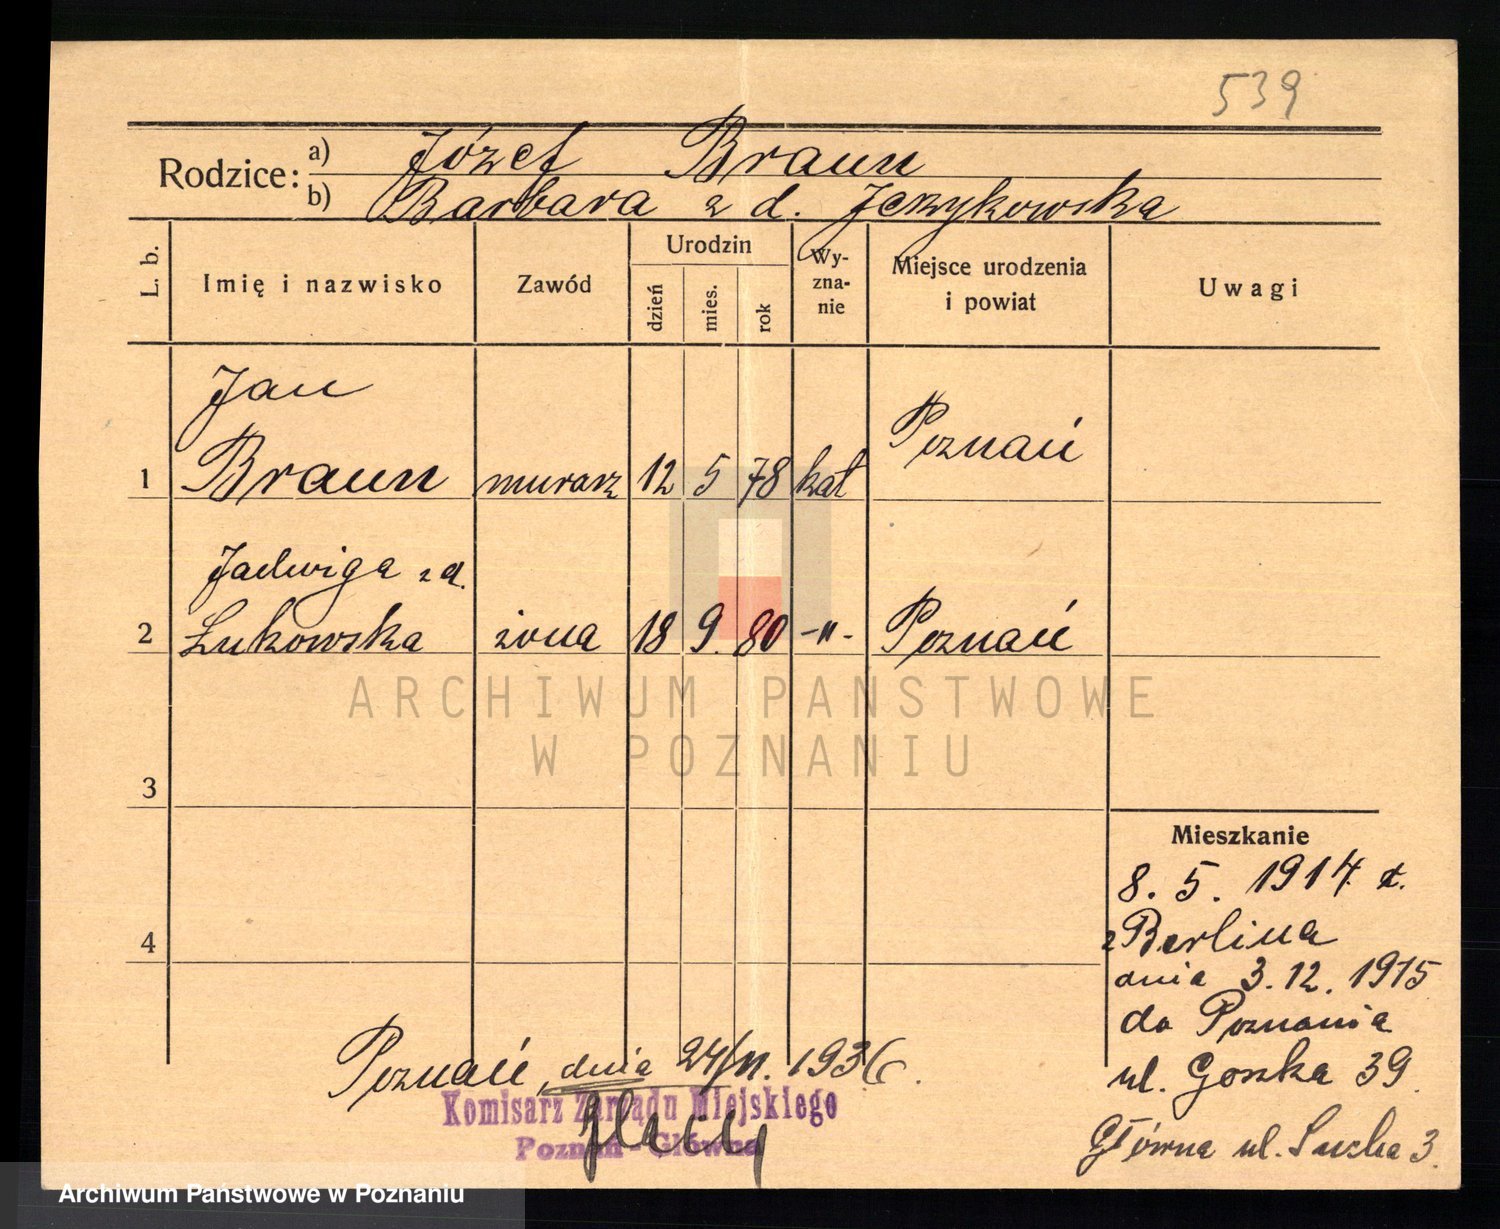 539
Rodzice: a) Józef Braun
b) Barbara z d. Jerzykowska
L. b.
Imię i nazwisko
Zawód
Urodzin
dzień
mies.
rok
Wy-
zna-
nie
Miejsce urodzenia
i powiat
Uwagi
Jan
1 Braun murarz 12 5 78 kat Poznań
Jadwiga z d.
2 Łukowska żona 18 9. 80 -"- Poznań
ARCHIWUM PAŃSTWOWE
W POZNANIU
3
4
Mieszkanie
8. 5. 1914
z Berlina
dnia 3. 12. 1915
do Poznania
ul. 39
Główna ul. 3.
Poznań, dnia 24/11. 1936.
Komisarz Zarządu Miejskiego
Poznań-Główna
Archiwum Państwowe w Poznaniu